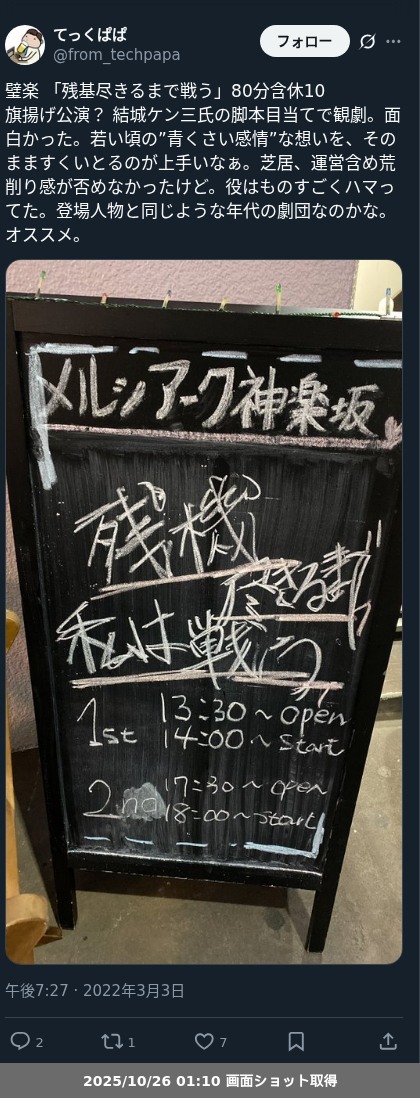 てっくぱぱ
@from_techpapa
フォロー
壁楽 「残基尽きるまで戦う」80分含休10
旗揚げ公演？ 結城ケン三氏の脚本目当てで観劇。面
白かった。若い頃の”青くさい感情”な想いを、その
まますくいとるのが上手いなぁ。芝居、運営含め荒
削り感が否めなかったけど。役はものすごくハマっ
てた。登場人物と同じような年代の劇団なのかな。
オススメ。
メルシアーク神楽坂
残機
尽きるまで
私は戦う
1st 13:30～open
14:00～start
2nd 17:30～open
18:00～start
午後7:27 · 2022年3月3日
2
1
7
2025/10/26 01:10 画面ショット取得